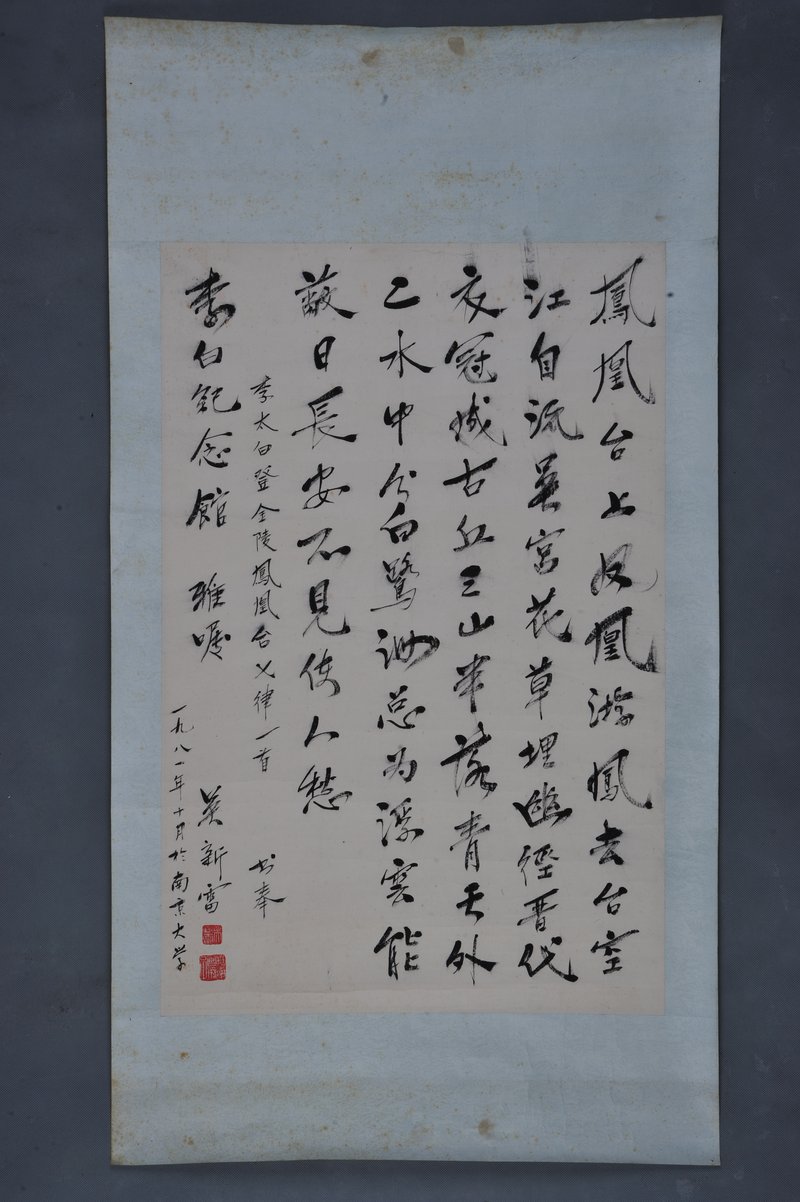 鳳凰台上凤凰游鳳去台空
江自流吴宮花草埋幽徑晋代
衣冠成古丘三山半落青天外
二水中分白鷺洲总为浮雲能
蔽日長安不見使人愁
李太白登金陵鳳凰台七律一首 书奉
李白紀念館 雅嘱
吴新雷
一九八一年十月於南京大学